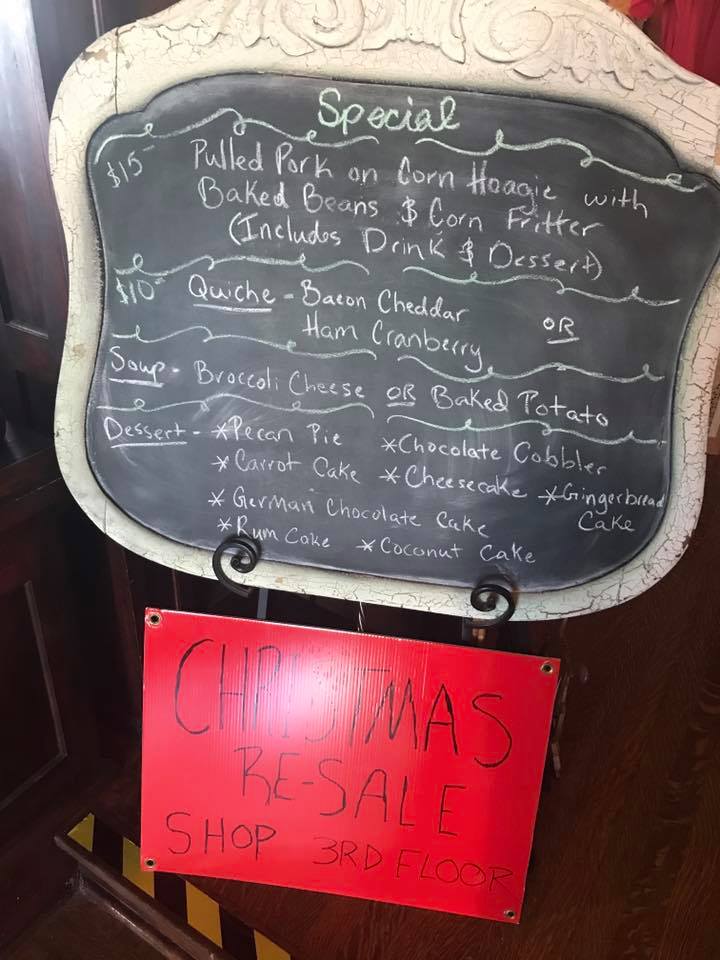 Special
$15- Pulled Pork on Corn Hoagie with
Baked Beans & Corn Fritter
(Includes Drink & Dessert)
$10- Quiche - Bacon Cheddar OR
Ham Cranberry
Soup - Broccoli Cheese OR Baked Potato
Dessert - *Pecan Pie *Chocolate Cobbler
*Carrot Cake *Cheesecake *Gingerbread
Cake
*German Chocolate Cake
*Rum Cake *Coconut Cake
CHRISTMAS
RE-SALE
SHOP 3RD FLOOR